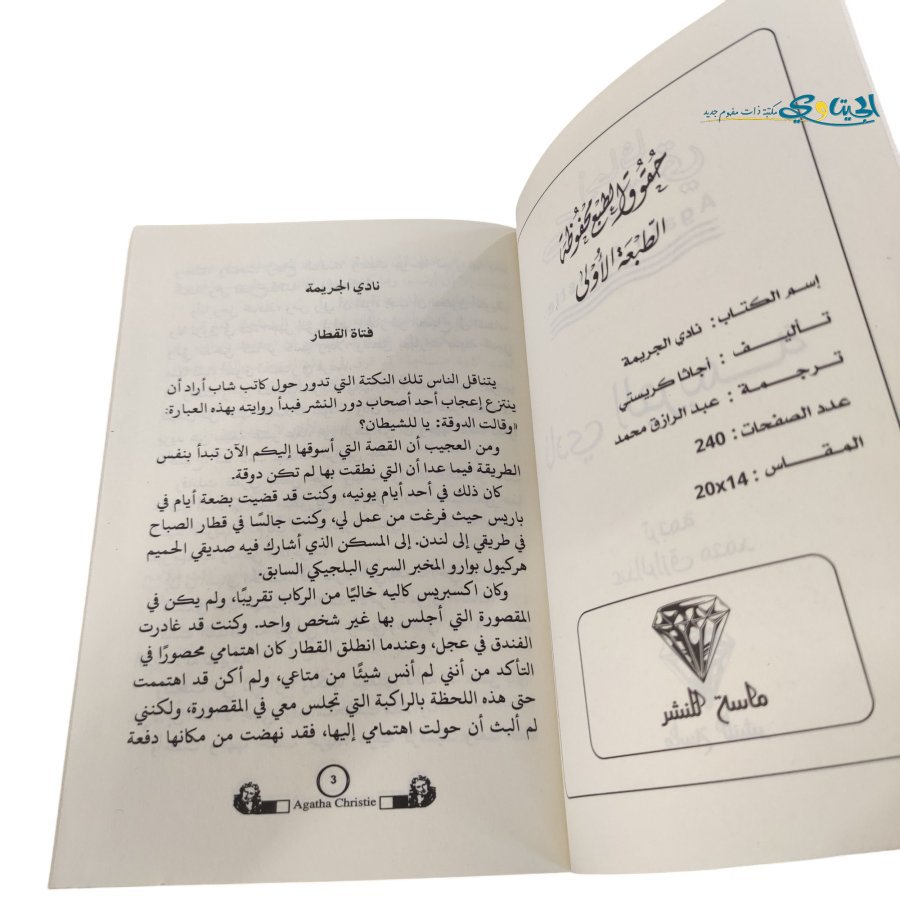 الجيتاوي مكتبة ذات مفهوم جديد
حُقُوقُ الطبعِ مَحْفُوظَة
الطَبْعَة الأُولى
إسم الكتاب: نادي الجريمة
تأليف: أجاثا كريستي
ترجمة: عبد الرازق محمد
عدد الصفحات: 240
المقاس: 20x14
ماسة للنشر
نادي الجريمة
فتاة القطار
يتناقل الناس تلك النكتة التي تدور حول كاتب شاب أراد أن
ينتزع إعجاب أحد أصحاب دور النشر فبدأ روايته بهذه العبارة:
«وقالت الدوقة: يا للشيطان؟
ومن العجيب أن القصة التي أسوقها إليكم الآن تبدأ بنفس
الطريقة فيما عدا أن التي نطقت بها لم تكن دوقة.
كان ذلك في أحد أيام يونيه، وكنت قد قضيت بضعة أيام في
باريس حيث فرغت من عمل لي، وكنت جالسًا في قطار الصباح
في طريقي إلى لندن. إلى المسكن الذي أشارك فيه صديقي الحميم
هركيول بوارو المخبر السري البلجيكي السابق.
وكان اكسبريس كاليه خاليًا من الركاب تقريبًا، ولم يكن في
المقصورة التي أجلس بها غير شخص واحد. وكنت قد غادرت
الفندق في عجل، وعندما انطلق القطار كان اهتمامي محصورًا في
التأكد من أنني لم أنس شيئًا من متاعي، ولم أكن قد اهتممت
حتى هذه اللحظة بالراكبة التي تجلس معي في المقصورة، ولكنني
لم ألبث أن حولت اهتمامي إليها، فقد نهضت من مكانها دفعة
3
Agatha Christie